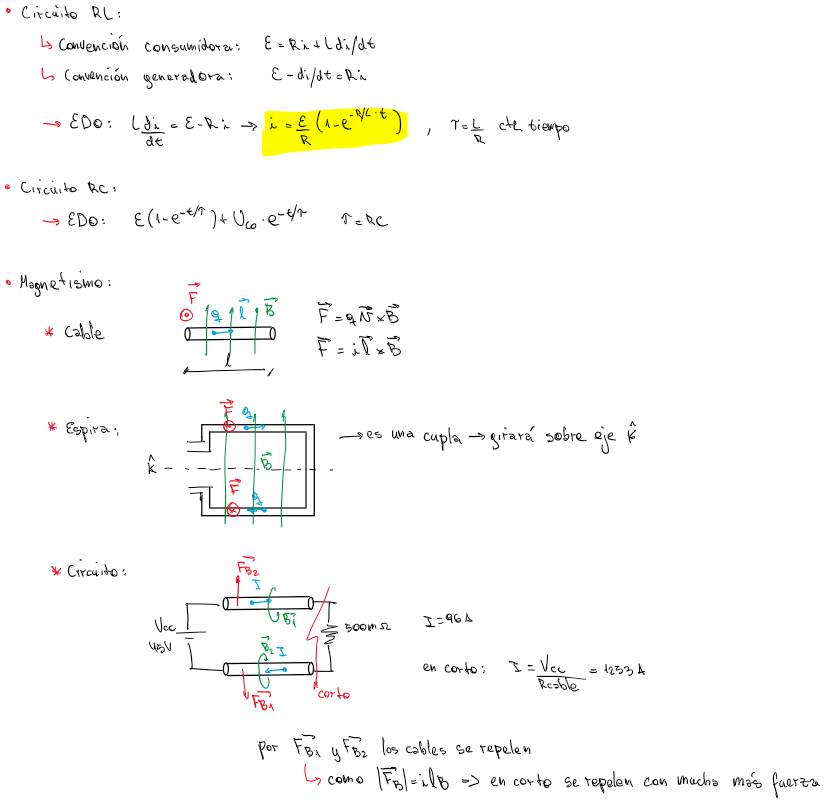 • Circuito RL:
↳ Convención consumidora: ε = Ri + L di/dt
↳ Convención generadora: ε - di/dt = Ri
→ EDO: L di/dt = ε - Ri → i = ε/R (1 - e^{-R/L · t}) , τ = L/R cte tiempo
• Circuito RC:
→ EDO: ε(1 - e^{-t/τ}) + U_{C0} · e^{-t/τ} τ = RC
• Magnetismo:
F⃗ q l⃗ B⃗
* Cable
F⃗ = q v⃗ × B⃗
F⃗ = i l⃗ × B⃗
l
* Espira:
F⃗ q
→ es una cupla → girará sobre eje k̂
k̂ B⃗
F⃗ q
* Circuito:
F⃗_{B2} I
B⃗_1
Vcc
45V
500mΩ
I = 96A
B⃗_2 I
F⃗_{B1} corto
en corto: I = Vcc/Rcable = 1233 A
por F⃗_{B1} y F⃗_{B2} los cables se repelen
↳ como |F⃗_B| = i l B ⇒ en corto se repelen con mucha más fuerza